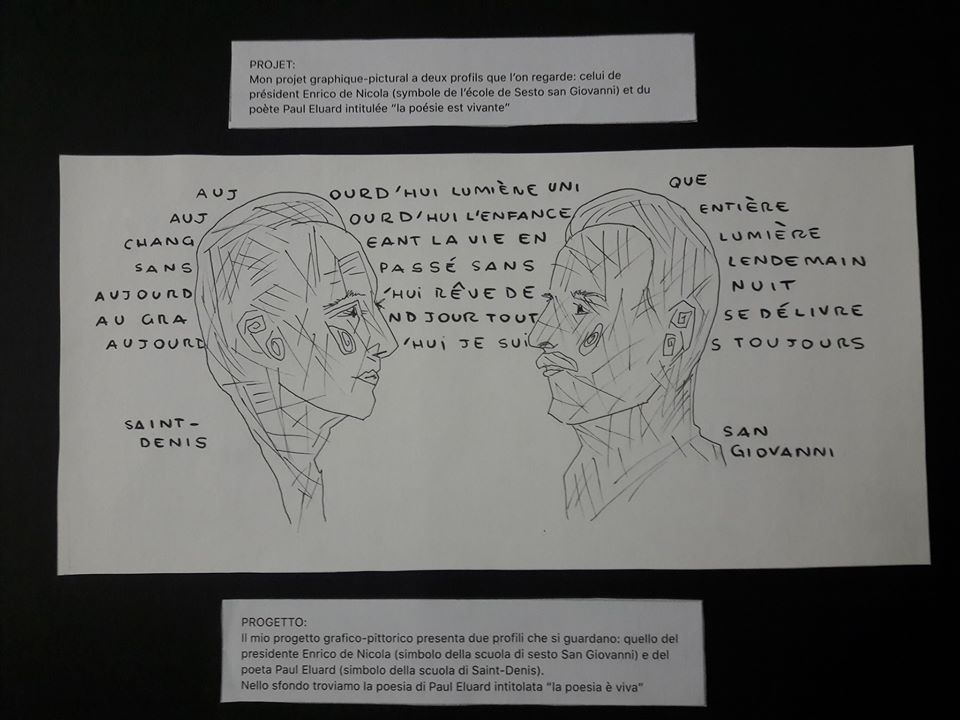 PROJET:
Mon projet graphique-pictural a deux profils que l'on regarde: celui de
président Enrico de Nicola (symbole de l'école de Sesto san Giovanni) et du
poète Paul Eluard intitulée “la poésie est vivante”
AUJ OURD'HUI LUMIÈNE UNI QUE
AUJ OURD'HUI L'ENFANCE ENTIÈRE
CHANG EANT LA VIE EN LUMIÈRE
SANS PASSÉ SANS LENDEMAIN
AUJOURD 'HUI RÊVE DE NUIT
AU GRA ND JOUR TOUT SE DÉLIVRE
AUJOURD 'HUI JE SUI S TOUJOURS
SAINT-
DENIS
SAN
GIOVANNI
PROGETTO:
Il mio progetto grafico-pittorico presenta due profili che si guardano: quello del
presidente Enrico de Nicola (simbolo della scuola di sesto San Giovanni) e del
poeta Paul Eluard (simbolo della scuola di Saint-Denis).
Nello sfondo troviamo la poesia di Paul Eluard intitolata “la poesia è viva”